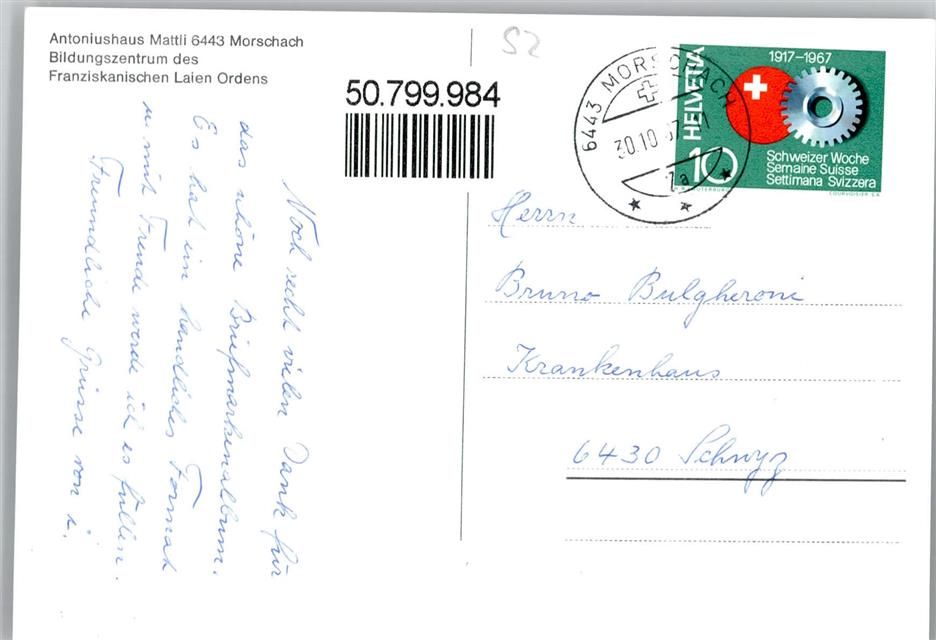 Antoniushaus Mattli 6443 Morschach
Bildungszentrum des
Franziskanischen Laien Ordens
52
50.799.984
6443 MORSCHACH
30.10.67
1a
HELVETIA
1917–1967
10
Schweizer Woche
Semaine Suisse
Settimana Svizzera
COURVOISIER S.A.
Noch recht vielen Dank für
das schöne Briefmarkenalbum.
Es hat ein handliches Format
u. mit Freude werde ich es füllen.
Freundliche Grüsse von
Herrn
Bruno Bulgheroni
Krankenhaus
6430 Schwyz